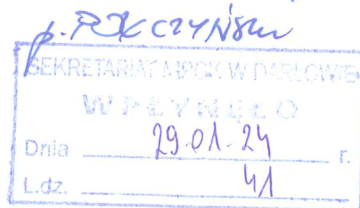 p.
SEKRETARIAT MPGK W DARŁOWIE
WPŁYNĘŁO
Dnia 29.01.24 r.
L.dz. 41